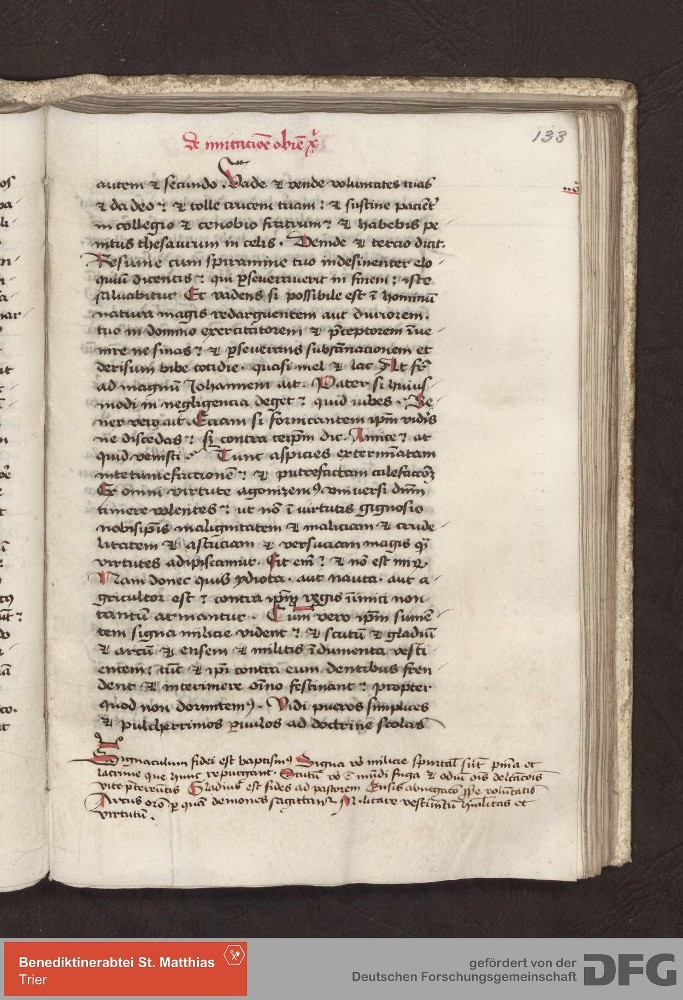 133
autem et secundo. Vade et vende voluntates tuas
et da deo: et tolle crucem tuam: et sustine pacient
in collegio et cenobio fratrum: et habebis pe
nitus thesaurum in celis. Deinde et tercio dicit.
Resume cum spiramine tuo indesinenter elo
quiū dicentis: qui ꝑseveraverit in finem: iste
salvabitur. Et vadens si possibile est ī hominū
natura magis redarguentem aut duriorem.
tuo in domino exercitatorem et p̄ceptorem īve
nire ne sinas: et ꝑseverans subsānacionem et
derisum bibe cotidie. quasi mel et lac. At fr̄
ad magnū Johannem ait. Pater si huius
modi in negligencia deget: quid iubes. Se
nex vero ait. Eciam si fornicantem ip̄m videris
ne discedas: sꝫ contra teip̄m dic. Amice: at
quid venisti. Tunc aspicies exterminatam
intetumefactionem: et putrefactam calefaccōꝫ
Ex omni virtute agonizemꝰ universi dn̄m
timere volentes: ut nō ī virtutis gignasio
nobisip̄is malignitatem et maliciam et crude
litatem et astuciam et versuciam magis qͣ
virtutes adipiscamur. Fit em̄: et nō est mirū.
Nam donec quis ydiota. aut nauta. aut a
gricultor est: contra ip̄m regis inimici non
tantū armantur. Cum vero ip̄m sumen
tem signa milicie vident: et scutū et gladiū
et arcū et ensem et militis īdumenta vesti
entem: tūc et ip̄i contra eum dentibus fren
dent et interimere oīno festinant: propter
quod non dormitemꝰ. Vidi pueros simplices
et pulcherrimos ꝑvulos ad doctrine scolas
Signaculum fidei est baptismꝰ Signa vo milicie spiritaľ sūt pn̄ia et
lacrime que hunc repurgant. Scutū vo ē mūdi fuga et odiū oīs delctacōis
vite p̄tereūtis Gladius est fides ad pastorem Ensis abnegaco ꝓpe volūtatis
Arcus oro ꝑ quā demones sagittantr Militare vestimtū humilitas et
virtutū.
Benediktinerabtei St. Matthias
Trier
gefördert von der
Deutschen Forschungsgemeinschaft
DFG